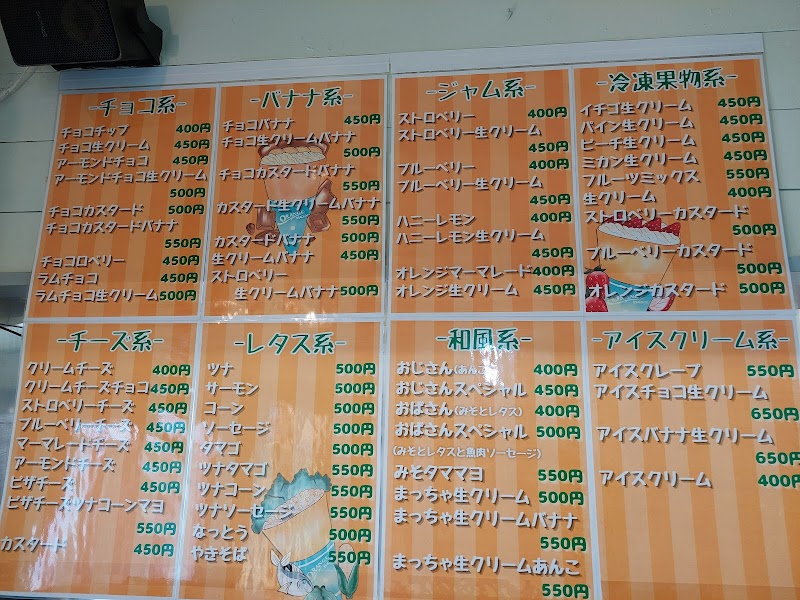 -チョコ系-
チョコチップ 400円
チョコ生クリーム 450円
アーモンドチョコ 450円
アーモンドチョコ生クリーム
500円
チョコカスタード 500円
チョコカスタードバナナ
550円
チョコロベリー 450円
ラムチョコ 450円
ラムチョコ生クリーム 500円
-バナナ系-
チョコバナナ 450円
チョコ生クリームバナナ
500円
チョコカスタードバナナ
550円
カスタード生クリームバナナ
550円
カスタードバナナ 500円
生クリームバナナ 450円
ストロベリー
生クリームバナナ 500円
-ジャム系-
ストロベリー 400円
ストロベリー生クリーム
450円
ブルーベリー 400円
ブルーベリー生クリーム
450円
ハニーレモン 400円
ハニーレモン生クリーム
450円
オレンジマーマレード 400円
オレンジ生クリーム 450円
-冷凍果物系-
イチゴ生クリーム 450円
パイン生クリーム 450円
ピーチ生クリーム 450円
ミカン生クリーム 450円
フルーツミックス 550円
生クリーム 400円
ストロベリーカスタード
500円
ブルーベリーカスタード
500円
オレンジカスタード 500円
-チーズ系-
クリームチーズ 400円
クリームチーズチョコ 450円
ストロベリーチーズ 450円
ブルーベリーチーズ 450円
マーマレードチーズ 450円
アーモンドチーズ 450円
ピザチーズ 450円
ピザチーズツナコーンマヨ
550円
カスタード 450円
-レタス系-
ツナ 500円
サーモン 500円
コーン 500円
ソーセージ 500円
タマゴ 500円
ツナタマゴ 550円
ツナコーン 550円
ツナソーセージ 550円
なっとう 500円
やきそば 550円
-和風系-
おじさん(あんこ) 400円
おじさんスペシャル 450円
おばさん(みそとレタス) 400円
おばさんスペシャル 500円
(みそとレタスと魚肉ソーセージ)
みそタママヨ 550円
まっちゃ生クリーム 500円
まっちゃ生クリームバナナ
550円
まっちゃ生クリームあんこ
550円
-アイスクリーム系-
アイスクレープ 550円
アイスチョコ生クリーム
650円
アイスバナナ生クリーム
650円
アイスクリーム 400円